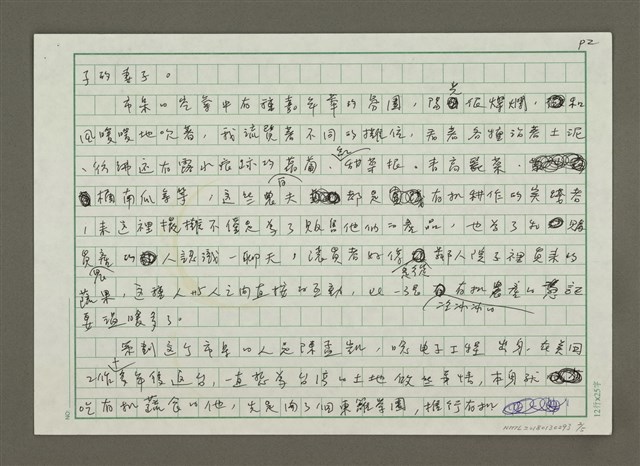 P2
子的妻子。
市集的空氣中有種嘉年華的氛圍，陽光很燦爛，和
風暖暖地吹著，我流覽著不同的攤位，看著各種沾著土泥
、彷彿還有露水痕跡的蘿蔔、紅甜菜根、青高麗菜
、南瓜等等，這些農夫都是有機耕作的實踐者
，來這裡擺攤不僅是為了販售他們的產品，也為了和購
買農產的人認識、聊天，讓買者好像從鄰人院子裡買來的
蔬果，這種人與人之間直接的互動，比一張冷冰冰的有機農產的標記
要溫暖多了。
策劃這个市集的人是陳孟凱，唸电子工程出身，在美国
工作多年後返台，一直想為台湾的土地做些事情，本身就
吃有机蔬食的他，先是開了個東籬茶園，推行有机
12行×25字
NMTL20180130093